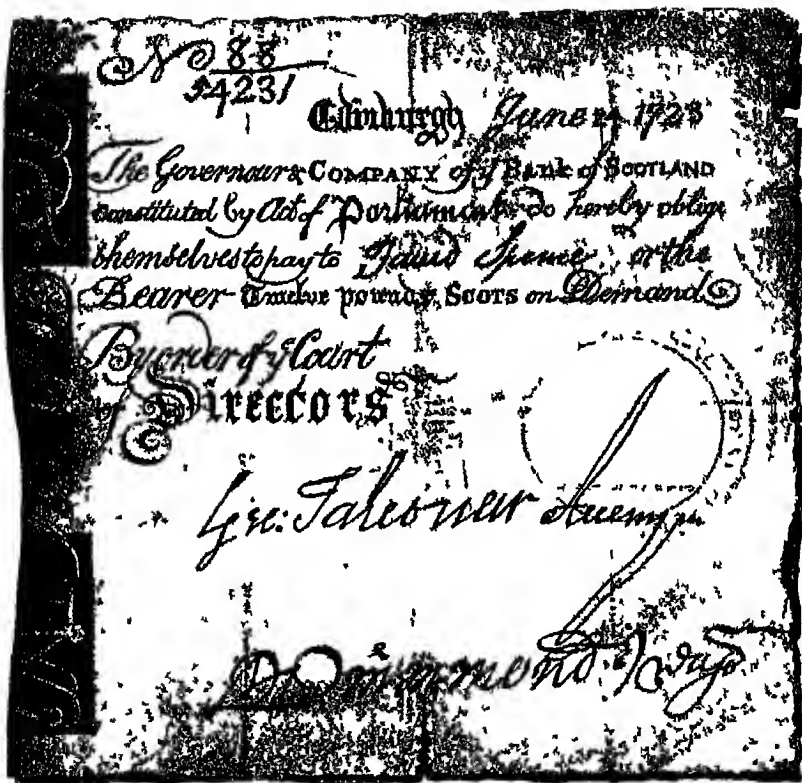 No 88
54231
Edinburgh June 24 1723
The Governour & COMPANY of ye Bank of SCOTLAND
constituted by Act of Parliament do hereby oblige
themselves to pay to David Spence or the
Bearer Twelve pounds SCOTS on Demand
By order of ye Court
of Directors
Geo: Falconer
Drummond